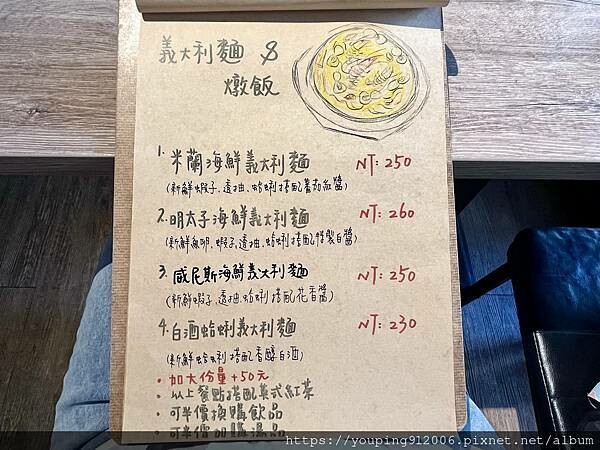 義大利麵 &
燉飯
1. 米蘭海鮮義大利麵 NT: 250
(新鮮蝦子、透抽、蛤蜊搭配蕃茄紅醬)
2. 明太子海鮮義大利麵 NT: 260
(新鮮魚卵、蝦子、透抽、蛤蜊搭配特製白醬)
3. 威尼斯海鮮義大利麵 NT: 250
(新鮮蝦子、透抽、蛤蜊搭配花香醬)
4. 白酒蛤蜊義大利麵 NT: 230
(新鮮蛤蜊搭配香醇白酒)
• 加大份量+50元
• 以上餐點搭配英式紅茶
• 可半價換購飲品
• 可半價加購湯品
https://youping912006.pixnet.net/album